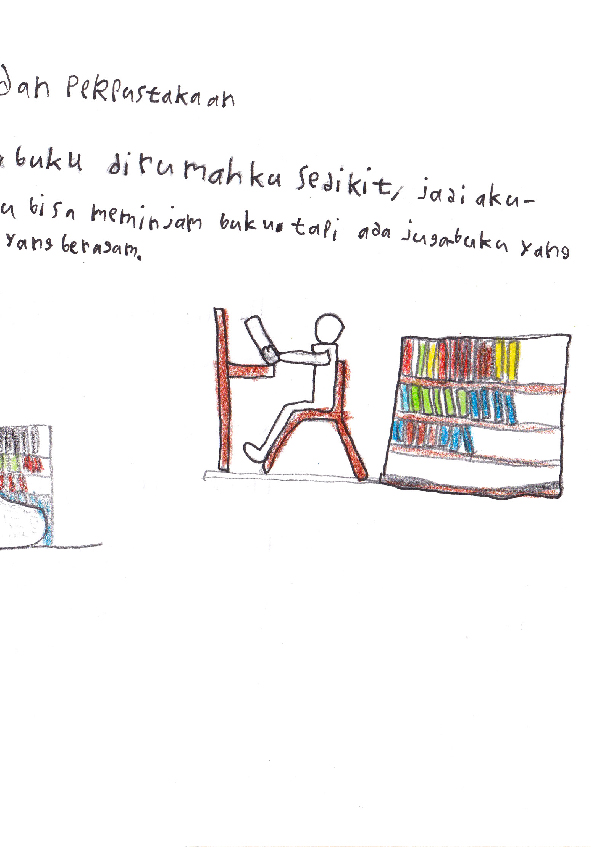 dan Perpustakaan
buku dirumahku sedikit, jadi aku-
u bisa meminjam buku tapi ada juga buku yang
yang beragam.